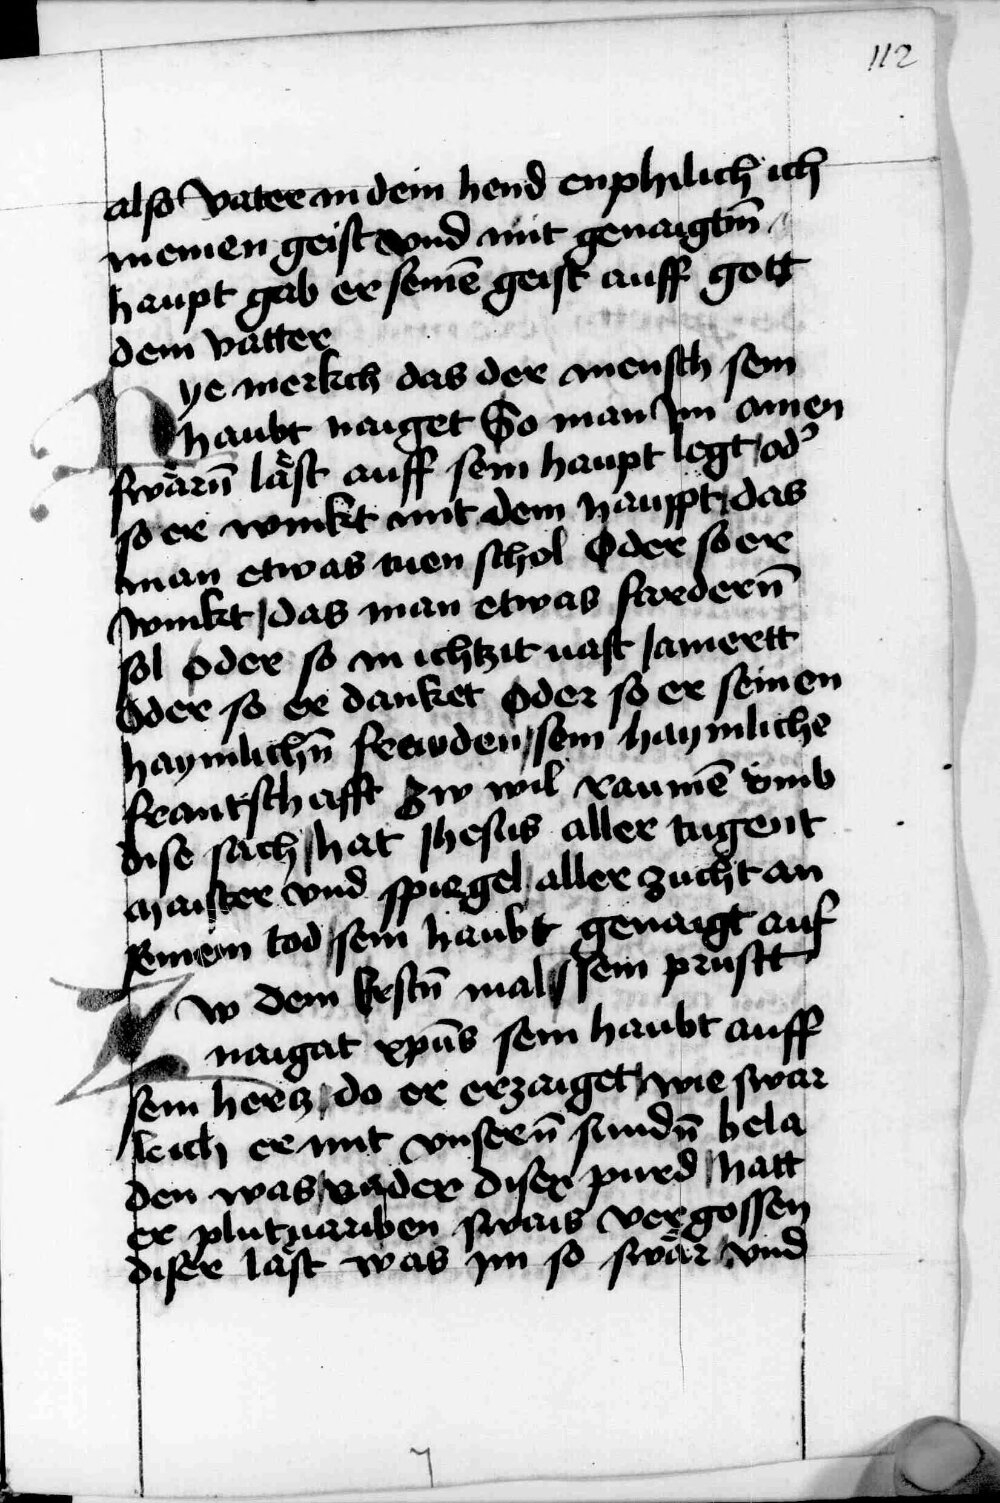 112
also vater in dein hend enphilich ich
meinen geist vnd mit genaigtm̄
haupt gab er seinē geist auff gott
dem vatter
Hye merkch das der mensch sein
haubt naiget So man Im ainen
swärn̄ läst auff sein haupt legt od᾽
so er winkt mit dem haupt das
man etwas tuen schol Oder so er
winkt das man etwas fuedern̄
sol oder so in ichtzit vast Jamertt
Oder so er danket Oder so er seinen
haymlichn̄ frewden sein haymliche
frantschafft zw wil raumē vmb
dise sach hat Jhesus aller tugent
maister vnd spiegel aller zucht an
seinem tod sein haubt genaigt auf
Zw dem Erstn̄ mal sein prustt
naigat xp̄us sein haubt auff
sein hercz do er erzaiget wie swar
leich er mit vnsern̄ sundn̄ bela
den was vnder diser purd hatt
er plutuariben swais vergossen
diser läst was jm so swär vnd